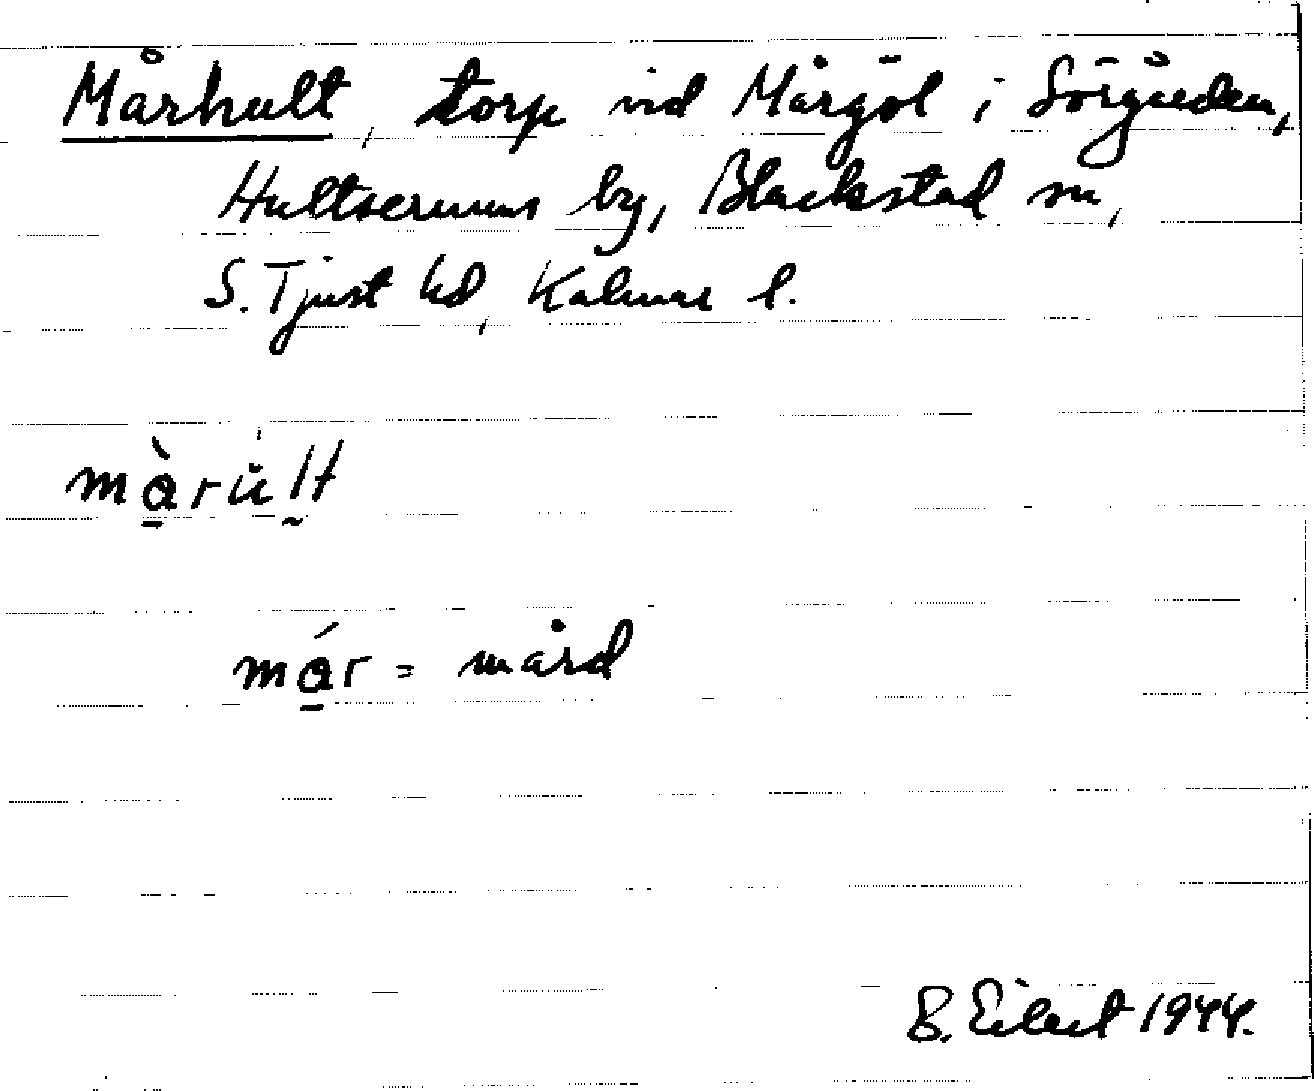 Mårhult, torp vid Mårgöl i Sörgården,
Hultserums by, Blackstad sn,
S. Tjust hd, Kalmar l.
màrùlt
már = mård
B. Eilert 1944.